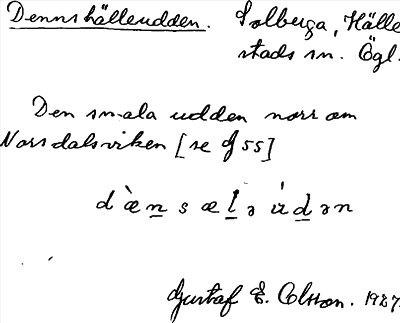 Dennshälleudden. Solberga, Hälle
stads sn. Ögl.
Den smala udden norr om
Norsdalsviken [se g 55]
dæ̀n sælə ùdən
Gustaf E. Olsson. 1927.